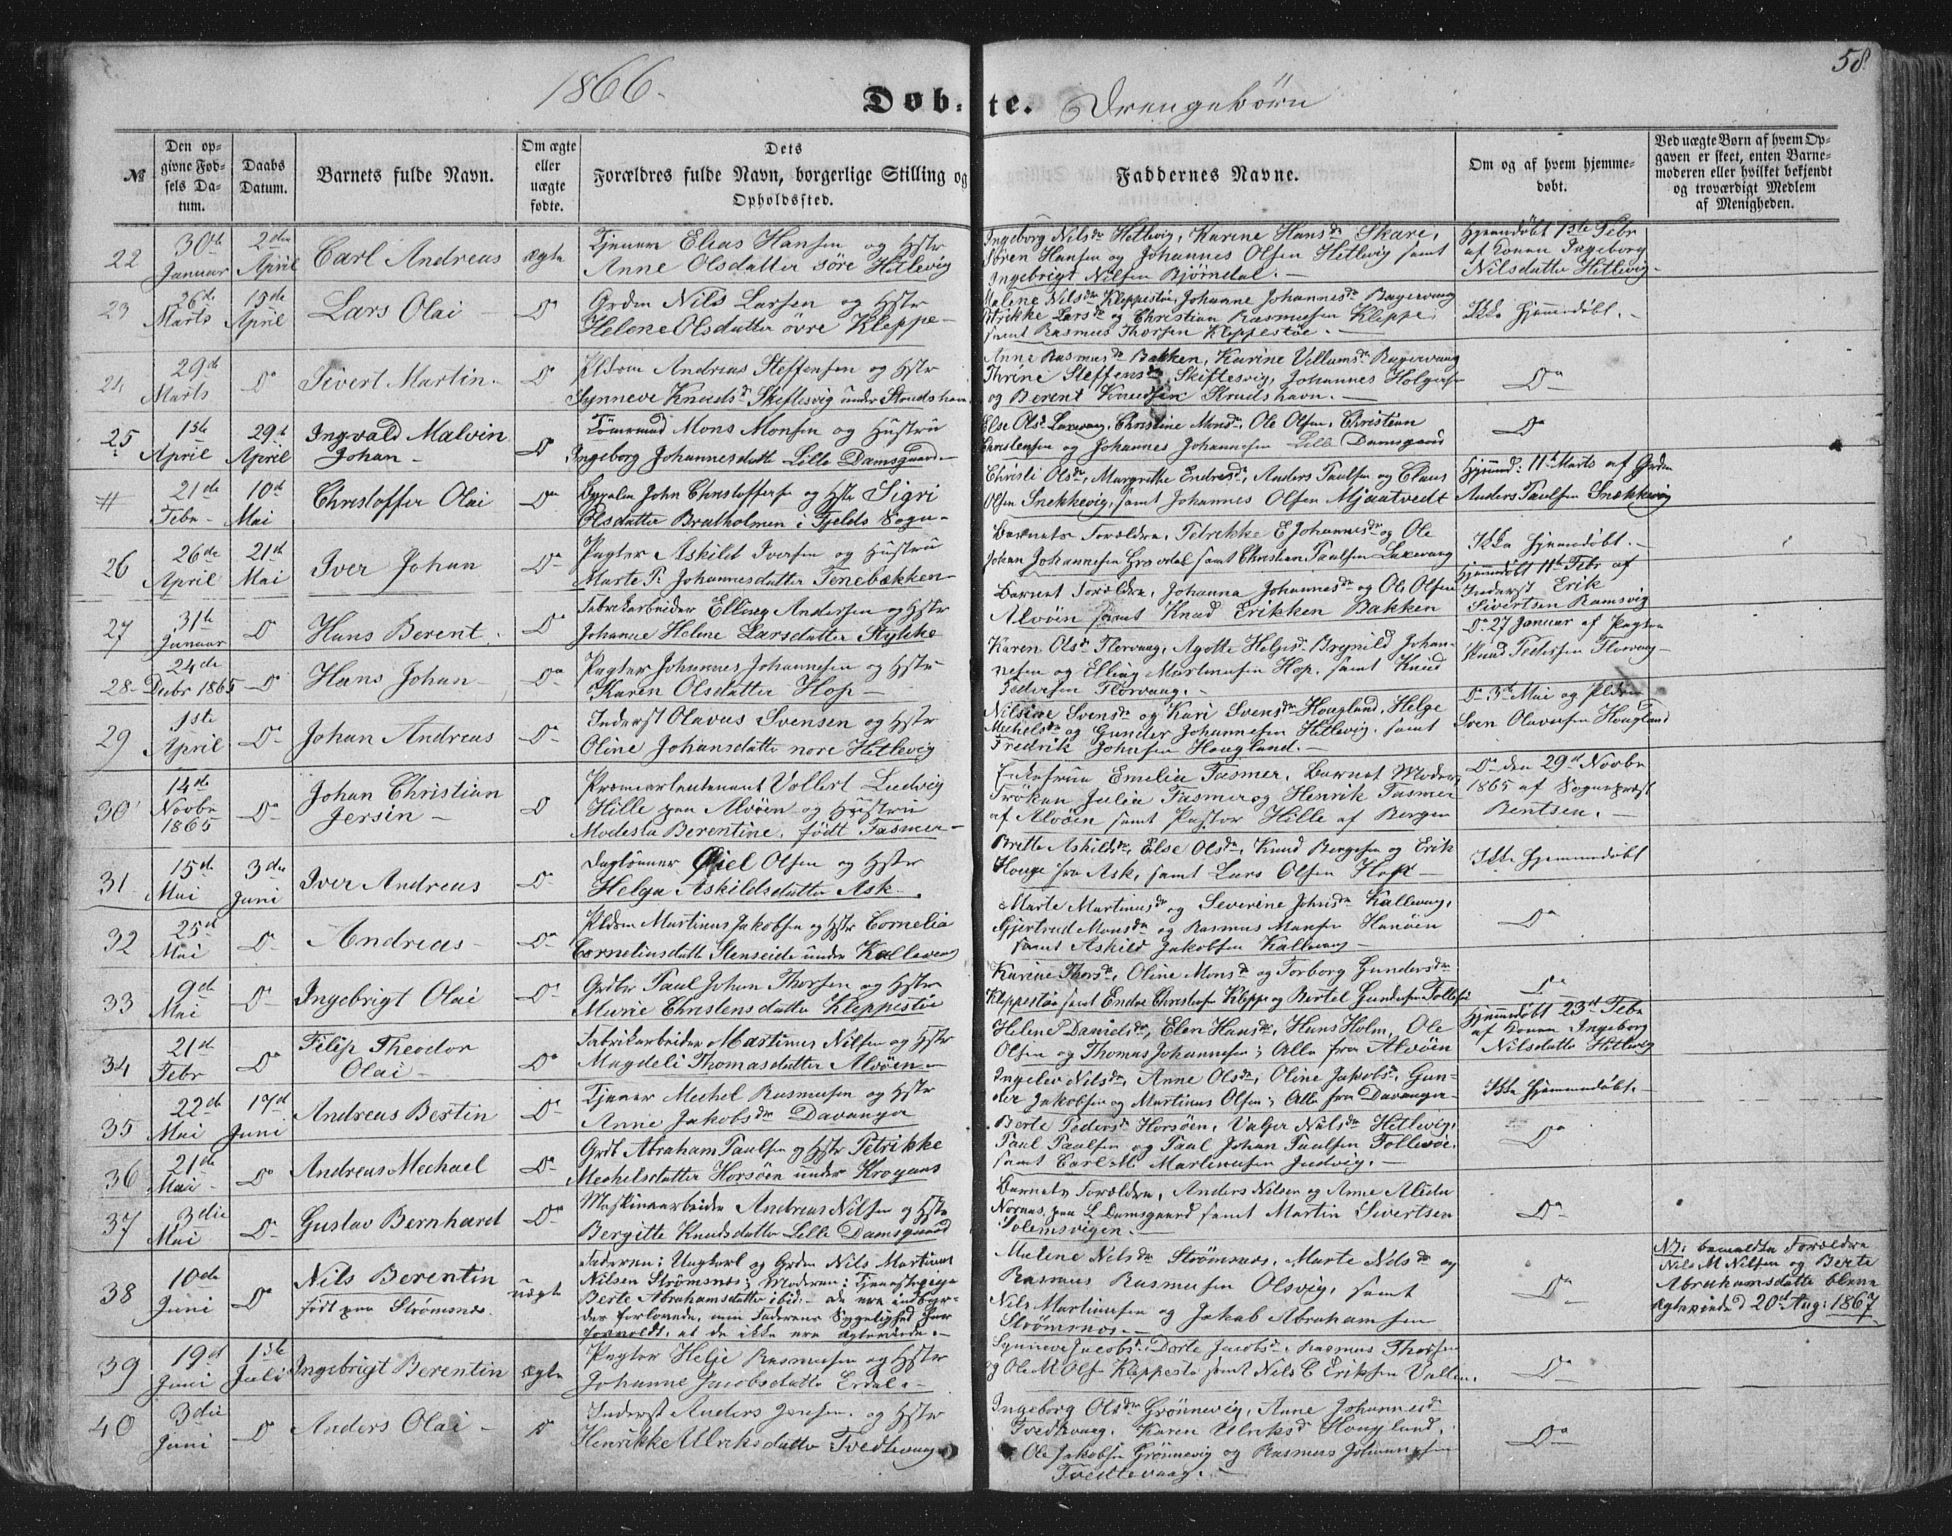 58
1866.
Døb-te. Drengebørn
№
Den opgivne Fødsels Datum.
Daabs Datum.
Barnets fulde Navn.
Om ægte eller uægte fødte.
Dets Forældres fulde Navn, borgerlige Stilling og Opholdssted.
Faddernes Navne.
Om og af hvem hjemmedøbt.
Ved uægte Børn af hvem Opgaven er skeet, enten Barnemoderen eller hvilket bekjendt og troværdigt Medlem af Menigheden.
22 30te Januar 2den April Carl Andreas ægte
Elias Hansen og Hstr
Anne Olsdatter søre Hitlevig
Ingeborg Nilsdr Hetlevig, Karine Hansdr Skare,
Søren Hansen og Johannes Olsen Hitlevig samt
Ingebrigt Nilsen Bjørndal. –
Hjemmedøbt 1ste Febr
af Konen Ingeborg
Nilsdatter Hitlevig
23 26de Marts 15de April Lars Olai – Do
Grdm Nils Larsen og Hstr
Helene Olsdatter øvre Kleppe –
Malene Nilsdr Kleppestøe, Johanne Johannesdr
Larsdr og Christian Rasmussen Kleppe,
samt Rasmus Thorsen Kleppestøe. –
Ikke Hjemmedøbt. –
24 29de Marts Do Sivert Martin – Do
Pldsm Andreas Steffensen og Hstr
Synneve Knudsdr Skiftesvig under Strudshavn
Anne Rasmusdr Bakken, Karine Villumsdr
Thrine Steffensdr Skiftesvig, Johannes Holgersen
og Berent Knudsen Strudshavn. –
Do
25 1ste April 29de April Ingvald Malvin Johan – Do
Tømmermd Mons Monsen og Hustru
Ingeborg Johannesdatter Lille Damsgaard –
Else Olsdr Laxevaag, Christine Monsdr, Ole Olsen, Christian
Christensen og Johannes Johannesen Lille Damsgaard
Do
# 21de Febr 10de Mai Christoffer Olai Do
John Christoffersen og Hstr Sigri
Olsdatter Bratholmen i Fjelds Sogn –
Christi Olsdr, Margrethe Endresdr, Anders Paulsen og Claus
Olsen Snekkevig, samt Johannes Olsen Mjaatvedt
Hjemmd: 11te Marts af Grdm
Anders Paulsen Snækkevig
26 26de April 21de Mai Iver Johan Do
Pagter Askild Iversen og Hustru
Marte P. Johannesdatter Tenebækken –
Barnets Forældre, Petrikke E Johannesdr og Ole
Johan Johannesen samt Christian Paulsen Laxevaag
Ikke Hjemmedøbt. –
27 31te Januar Do Hans Berent. Do
Fabrikarbeider Elling Andersen og Hstr
Johanne Helene Larsdatter
Barnet Forældre, Johanna Johannesdr og Ole Olsen
Alvöen samt Knud Erikken Bakken
Hjemmedøbt 11te Febr af
Inderst Erik
Sivertsen Ramsvig
28 24de Decbr 1865 Do Hans Johan – Do
Pagter Johannes Johannesen og Hstr
Karen Olsdatter Hop –
Karen Olsdr Florvaag, Agotte Helgesdr Brynild Johannesen og Elling Martinusen Hop, samt Knud
Pedersen Florvaag. –
Do 27 Januar af Pagter
Knud Pedersen Florvaag –
29 1ste April Do Johan Andreas Do
Inderst Olavus Svensen og Hstr
Oline Johansdatter nore Hitlevig
Nilsine Svensdr og Kari Svensdr Hougland, Helge
Mechelsdr og Gunder Johannesen Hitlevig, samt
Fredrik Johnsen Hougland. –
Do 3de Mai og Pldsm
Sven Olavesen Hougland
30 14de Novbr 1865 Do Johan Christian Jersin – Do
Premierlieutenant Vollert Ludvig
Hille paa Alvöen og Hustru
Modesta Berentine, født Fasmer –
Enkefrue Emelia Fasmer, Barnet Moder,
Frøken Julia Fasmer og Henrik Fasmer
af Alvöen samt Pastor Hille af Bergen
Do den 29de Novbr
1865 af Sognepræst
Bentsen. –
31 15de Mai 3die Juni Iver Andreas Do
Daglønner Øiel Olsen og Hstr
Helga Askildsdatter Ask –
Britte Askildsdr, Else Olsdr, Knud Bergesen og Erik
Houge fra Ask, samt Lars Olsen Hop –
Ikke Hjemmedøbt
32 25de Mai Do Andreas – Do
Pldsm Martinus Jakobsen og Hstr Cornelia
Corneliusdatter Stenseide under Kallevaag
Marte Martinusdr og Severine Johnsdr Kallevaag,
Gjertrud Monsdr og Rasmus Monsen Hanöen
samt Askild Jakobsen Kallevaag –
Do
33 9de Mai Do Ingebrigt Olai Do
Grdbr Paul Johan Thorsen og Hstr
Marie Christensdatter Kleppestøe
Karine Thorsdr, Oline Monsdr og Torborg Gundersdr
Kleppestøe, samt Endre Christensen Kleppe og Bertel Gundersen Follesøe
Do
34 21de Febr Do Filip Theodor Olai – Do
Fabrikarbeider Martinus Nilsen og Hstr
Magdeli Thomasdatter Alvöen –
Helene Danielsdr, Elen Hansdr, Hans Holm, Ole
Olsen og Thomas Johannesen; Alle fra Alvöen
Hjemmedøbt 23de Febr
af Konen Ingeborg
Nilsdatter Hitlevig
35 22de Mai 17de Juni Andreas Bertin Do
Mechel Rasmusen og Hstr
Anne Jakobsdr Davanger
Ingelev Nilsdr, Anne Olsdr, Oline Jakobsdr, Gunder Jakobsen og Martinus Olsen; Alle fra Davanger –
Ikke Hjemmedøbt. –
36 21de Mai – Do Andreas Mechael Do
Grdb Abraham Paulsen og Hstr Petrikke
Mechelsdatter Horsöen under Krogaas
Berte Pedersdr Horsöen, Valger Nilsdr Hetlevig,
Paul Paulsen og Paul Johan Paulsen Follesøe,
samt Carl M. Martinusen Judvig. –
Do
37 3die Mai Do Gustav Bernhard Do
Maskinaarbeider Andreas Nilsen og Hstr
Bergitte Knudsdatter Lille Damsgaard
Barnets Forældre, Anders Nilsen og Anne Alida
Nornes, paa L. Damsgaard samt Martin Sivertsen
Solemsvigen. –
Do
38 10de Juni Do Nils Berentin født paa Strømsnes. uægte
Faderen: Ungkarl og Grdm Nils Martinus
Nilsen Strømsnes; Moderen: Tjenestepige
Berte Abrahamsdatter ibid: – de ere
forlovede, men Faderens Sygelighed har
forvoldt, at de ikke ere Ægteviede. –
Malene Nilsdr Strømsnes, Marte Nilsdr og
Rasmus Rasmusen Olsvig, samt
Nils Martinusen og Jakob Abrahamsen
Strømsnes. –
Do
NB: bemeldte Forældre
Nils M Nilsen og Berte
Abrahamsdatter bleve
Ægteviede d 20de Aug: 1867
39 19de Juni 1ste Juli Ingebrigt Berentin ægte
Pagter Helje Rasmusen og Hstr
Johanne Jacobsdatter Erdal. –
Synneve Jacobsdr Dorte Jacobsdr, Rasmus Thorsen
og Ole M Olsen Kleppestø samt Nils C Eriksen
Do
40 3die Juni Do Anders Olai – Do
Inderst Anders Jensen og Hstr
Henrikke Ulriksdatter Tvedtevaag
Ingeborg Olsdr Grönnevig, Anne Johannesdr
Tvedtevaag, Karen Ulriksdr Hougland,
Ole Jakobsen Grönnevig og Rasmus Johannesen
Tvedtevaag. –
Do